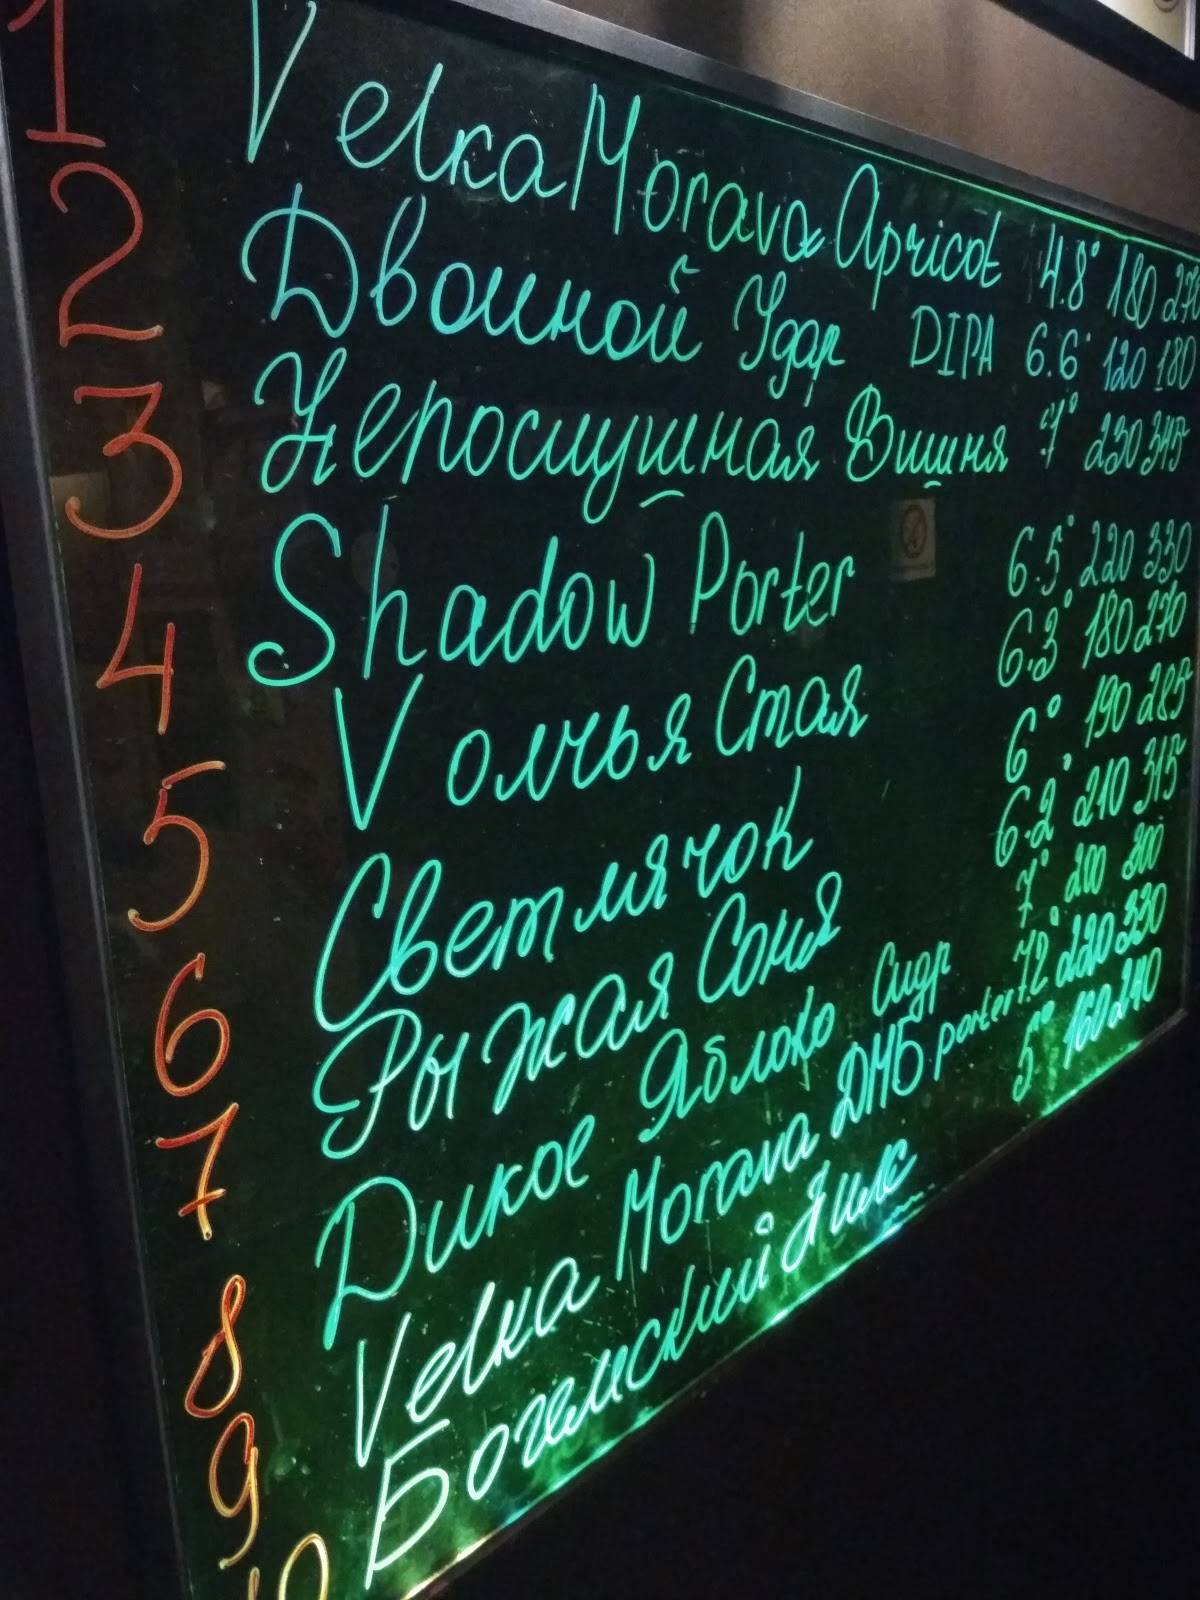 1 Velka Morava Apricot 4.8° 180 270
2 Двойной Удар DIPA 6.6° 120 180
3 Непослушная Вишня 7° 230 345
4 Shadow Porter 6.5° 220 330
5 Vолчья Стая 6.3° 180 270
6 Светлячок 6° 190 285
7 Рыжая Соня 6.2° 210 315
8 Дикое Яблоко Сидр 7° 200 300
9 Velka Morava ДМБ porter 7.2° 220 330
10 Богемский Пилс 5° 160 240